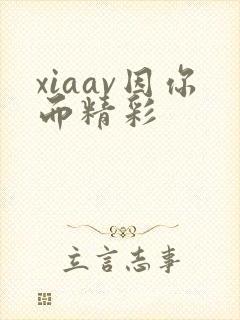 xiaav因你
而精彩
立言志事